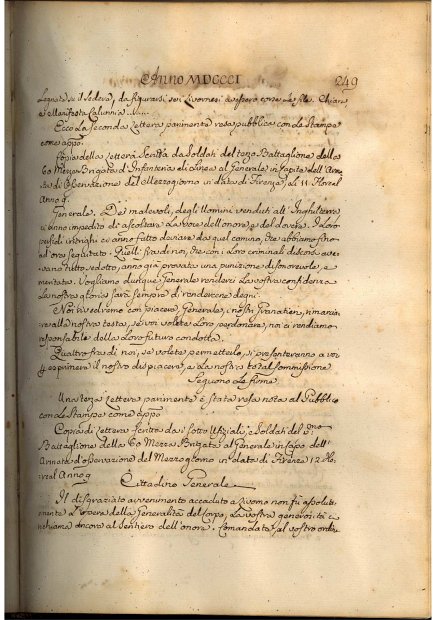 Anno MDCCCI
249
Legnate su il sedere, da figurarsi se i Livornesi avessero corse le file. Chiara,
e Manifesta Calunnia.....
Ecco La Seconda Lettera parimente resa pubblica con Le Stampe
come appo
Copia della Lettera Scritta da Soldati del terzo Battaglione della
60 Mezza Brigata d'Infanteria di Linea al Generale in Capite dell'Arma-
ta di Osservazione del Mezzogiorno in data di Firenze, li 11 Floreal
Anno 9.
Generale. Dei malevoli, degli Uomini venduti all'Inghilterra
ci anno impedito di ascoltare La voce dell'onore, e del dovere. I Loro
perfidi intrighi ci anno fatto deviare da quel camino, che abbiamo fino
ad ora seguitato. Quelli fra di noi, che con i Loro criminali discorsi av-
evano tutto sedotto, anno già provato una punizione disonorevole, e
meritata. Vogliamo dunque Generale renderci La vostra confidenza
La nostra gloria sarà sempre di rendercene degni.
Noi rivedremo con piacere, Generale, i nostri Granatieri, rimarcia-
re alla nostra testa, se voi volete Loro perdonare, noi ci rendiamo
responsabili della Loro futura condotta.
Quattro fra di noi, se volete permetterlo, si presenteranno a voi
p esprimere il nostro dispiacere, e La nostra total sommissione
Seguono Le firme.
Una terza Lettera parimente è stata resa nota al Pubblico
con Le Stampe come appo
Copia di Lettera scritta da i sotto Ufiziali, e Soldati del pmo
Battaglione della 60 Mezza Brigata al Generale in Capo dell'
Armata d'osservazione del Mezzogiorno in data di Firenze 12 Flo-
real Anno 9
Cittadino Generale
Il disgraziato avvenimento accaduto a Livorno non fù assoluta-
mente L'opera della Generalità del Corpo, La vostra generosità ci
richiama ancora al Sentiero dell'onore. Comandate, al vostro ordine